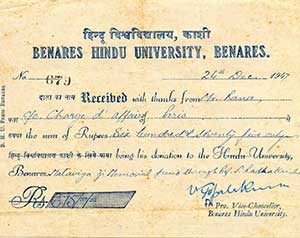 हिन्दू विश्वविद्यालय, काशी
BENARES HINDU UNIVERSITY, BENARES.
No. 679 24th Dec. 1947
दाता का नाम Received with thanks from Rana
c/o Charge d' affairs Paris
the sum of Rupees Six hundred & Seventy five only
हिन्दू विश्वविद्यालय के लिये being his donation to the Hindu University,
Benares Malaviya ji Memorial fund through
Rs. 675/-/-
Pro. Vice-Chancellor,
Benares Hindu University.
B. H. U. PRESS BENARES